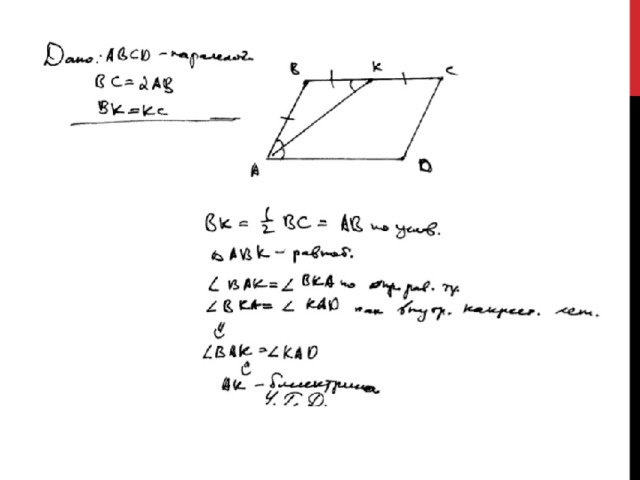 Дано: ABCD - паралелог.
BC = 2AB
BK = KC
B K C
A D
BK = 1/2 BC = AB по услов.
△ ABK - равноб.
∠ BAK = ∠ BKA по опр. рав. тр.
∠ BKA = ∠ KAD как внутр. накрест. леж.
∠BAK = ∠KAD
AK - биссектриса
Ч.Т.Д.